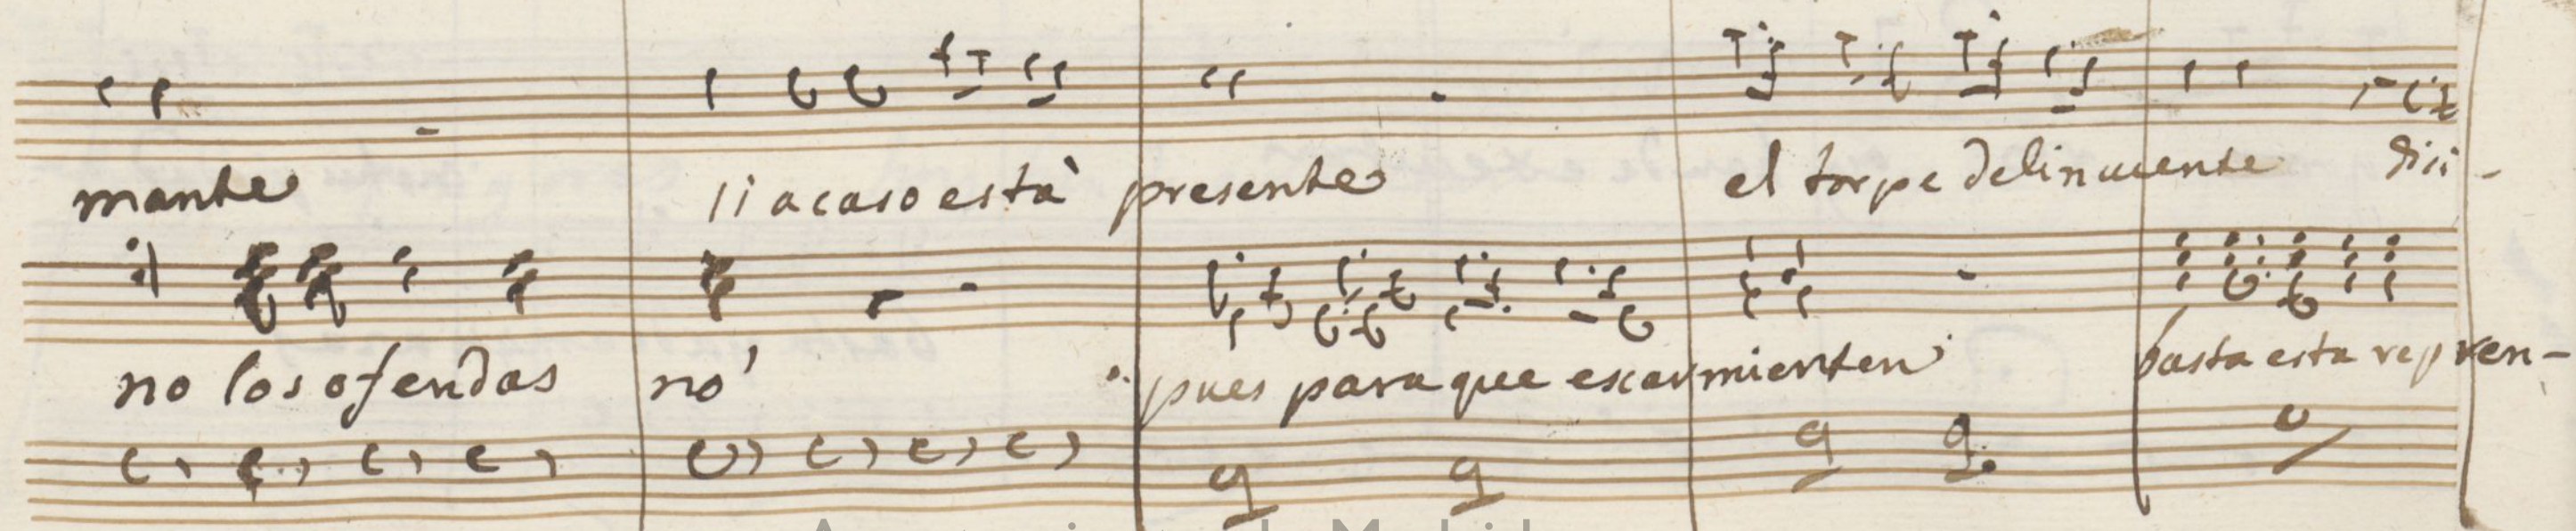 mante si acaso està presente el torpe delinuente dici-
no los ofendas no pues para que escarmienten basta esta repren-